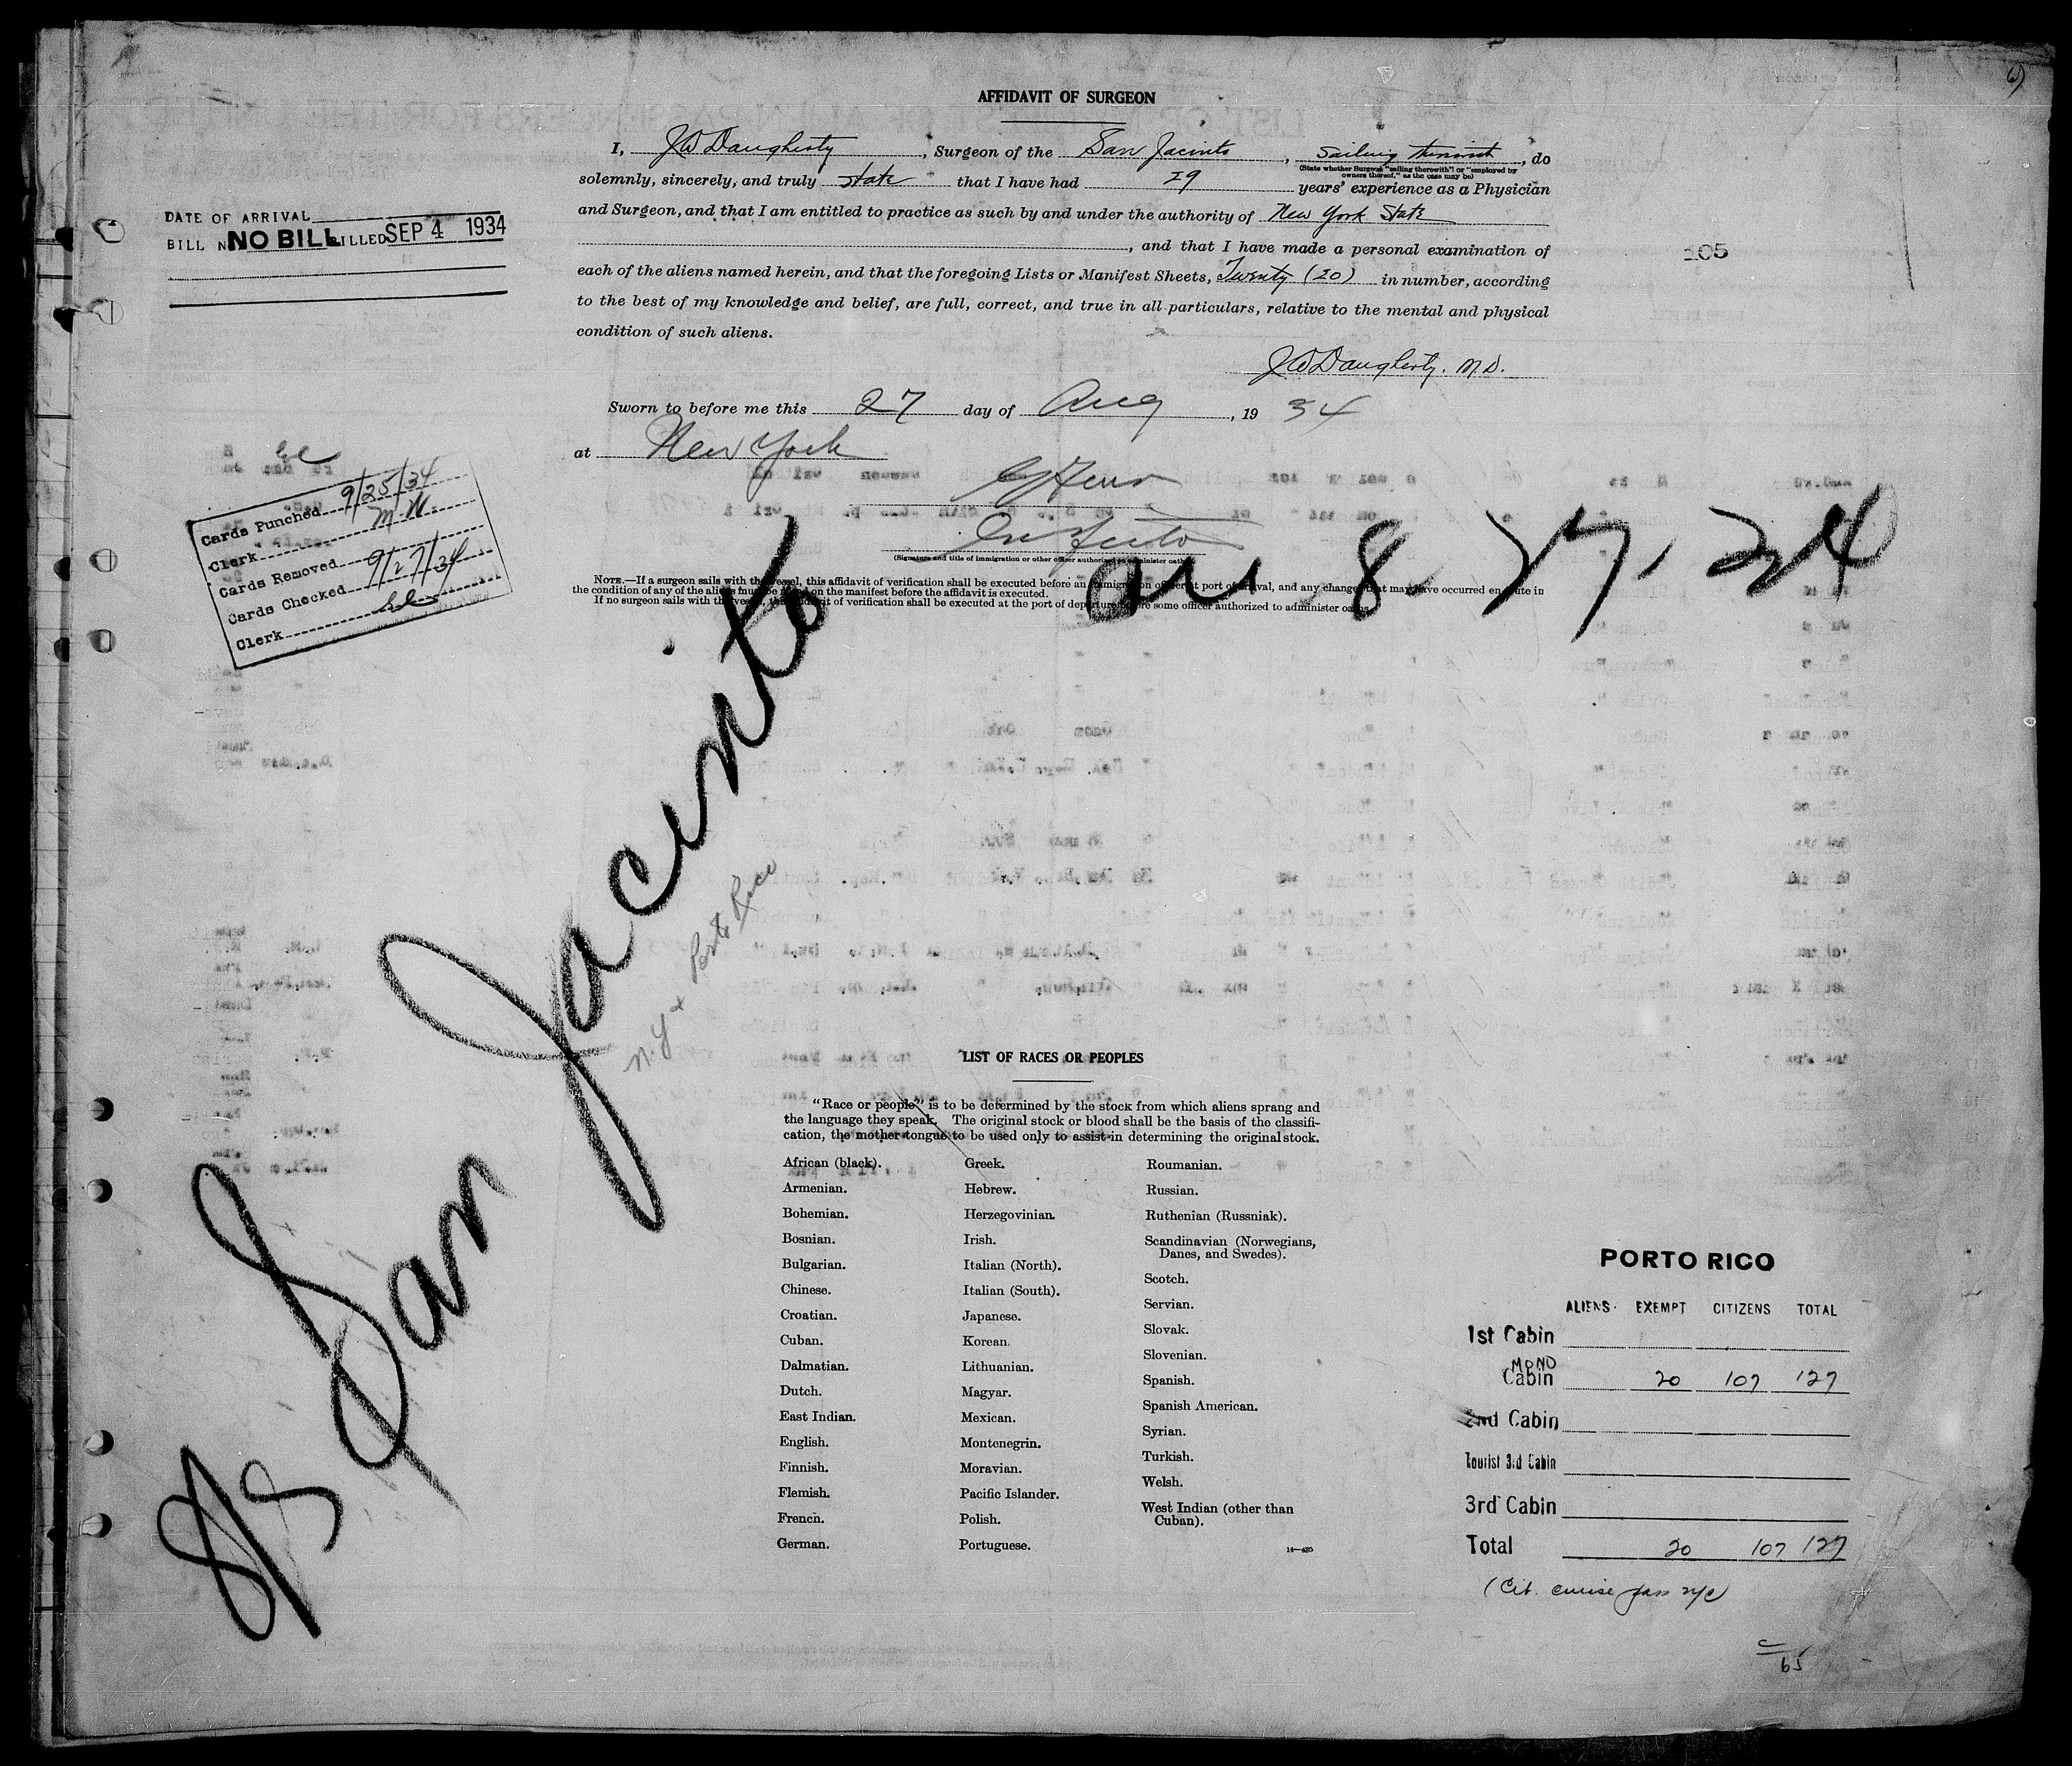 AFFIDAVIT OF SURGEON
I, JW Daugherty, Surgeon of the San Jacinto, sailing therewith, do
(State whether Surgeon "sailing therewith" or "employed by
owners thereof," as the case may be)
solemnly, sincerely, and truly state that I have had 29 years' experience as a Physician
and Surgeon, and that I am entitled to practice as such by and under the authority of New York State
, and that I have made a personal examination of
each of the aliens named herein, and that the foregoing Lists or Manifest Sheets, Twenty (20) in number, according
to the best of my knowledge and belief, are full, correct, and true in all particulars, relative to the mental and physical
condition of such aliens.
JW Daugherty. M.D.
Sworn to before me this 27 day of Aug, 1934
at New York
(Signature and title of immigration or other officer authorized to administer oath)
NOTE.—If a surgeon sails with the vessel, this affidavit of verification shall be executed before an immigration officer at port of arrival, and any changes that may have occurred en route in
the condition of any of the aliens must be noted on the manifest before the affidavit is executed.
If no surgeon sails with the vessel, the affidavit of verification shall be executed at the port of departure before some officer authorized to administer oaths.
DATE OF ARRIVAL
BILL N NO BILL BILLED SEP 4 1934
105
Cards Punched 9/25/34
Clerk M W.
Cards Removed
Cards Checked 9/27/34
Clerk
8. 27. 34
S/S San Jacinto
N.Y & Porto Rico
LIST OF RACES OR PEOPLES
"Race or people" is to be determined by the stock from which aliens sprang and
the language they speak. The original stock or blood shall be the basis of the classifi-
cation, the mother tongue to be used only to assist in determining the original stock.
African (black).
Armenian.
Bohemian.
Bosnian.
Bulgarian.
Chinese.
Croatian.
Cuban.
Dalmatian.
Dutch.
East Indian.
English.
Finnish.
Flemish.
French.
German.
Greek.
Hebrew.
Herzegovinian.
Irish.
Italian (North).
Italian (South).
Japanese.
Korean.
Lithuanian.
Magyar.
Mexican.
Montenegrin.
Moravian.
Pacific Islander.
Polish.
Portuguese.
Roumanian.
Russian.
Ruthenian (Russniak).
Scandinavian (Norwegians,
Danes, and Swedes).
Scotch.
Servian.
Slovak.
Slovenian.
Spanish.
Spanish American.
Syrian.
Turkish.
Welsh.
West Indian (other than
Cuban).
PORTO RICO
ALIENS EXEMPT CITIZENS TOTAL
1st Cabin
MONO
Cabin 20 107 127
2nd Cabin
Tourist 3rd Cabin
3rd Cabin
Total 20 107 127
(Cit. cruise pass n/c)
65